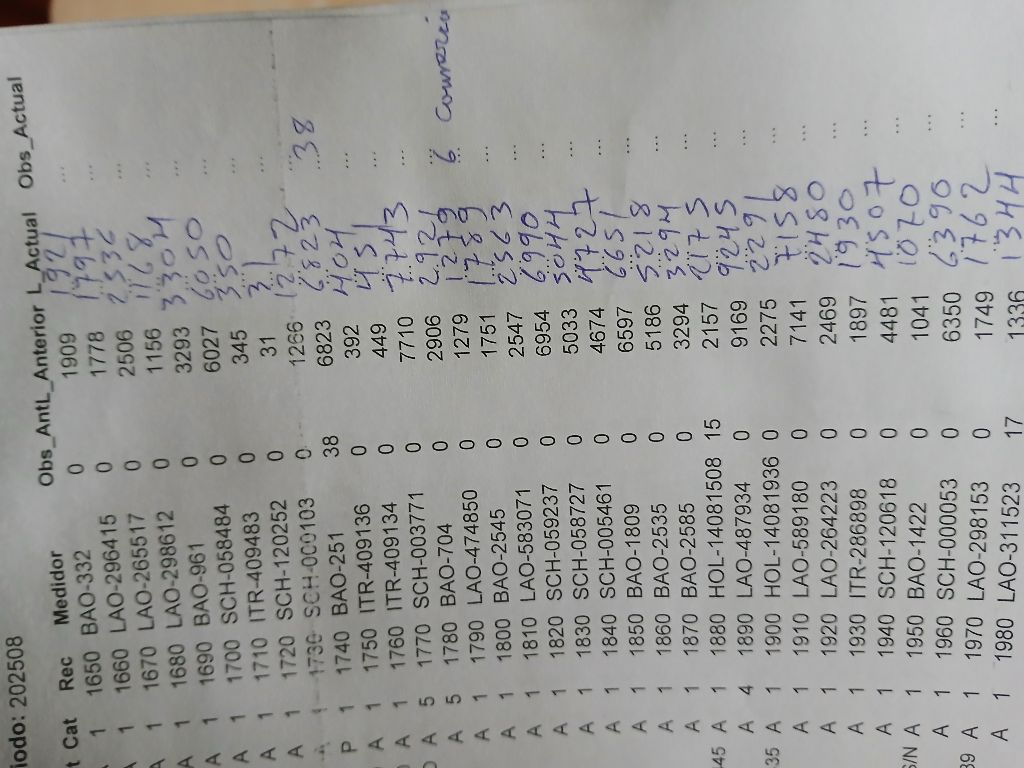 iodo: 202508
t Cat Rec Medidor Obs_Ant L_Anterior L_Actual Obs_Actual
1 1650 BAO-332 0 1909 1921 ...
1 1660 LAO-296415 0 1778 1797 ...
A 1 1670 LAO-265517 0 2506 2536 ...
A 1 1680 LAO-298612 0 1156 1168 ...
A 1 1690 BAO-961 0 3293 3304 ...
A 1 1700 SCH-058484 0 6027 6050 ...
A 1 1710 ITR-409483 0 345 350 ...
A 1 1720 SCH-120252 0 31 31 ...
A 1 1730 SCH-000103 0 1266 1272 ...
P 1 1740 BAO-251 38 6823 6823 ... 38
A 1 1750 ITR-409136 0 392 404 ...
A 1 1760 ITR-409134 0 449 451 ...
A 5 1770 SCH-003771 0 7710 7743 ...
A 5 1780 BAO-704 0 2906 2921 ...
A 1 1790 LAO-474850 0 1279 1279 ... 6
A 1 1800 BAO-2545 0 1751 1789 ...
A 1 1810 LAO-583071 0 2547 2563 ...
A 1 1820 SCH-059237 0 6954 6990 ...
A 1 1830 SCH-058727 0 5033 5044 ...
A 1 1840 SCH-005461 0 4674 4727 ...
A 1 1850 BAO-1809 0 6597 6651 ...
A 1 1860 BAO-2535 0 5186 5218 ...
A 1 1870 BAO-2585 0 3294 3294 ...
45 A 1 1880 HOL-14081508 15 2157 2175 ...
A 4 1890 LAO-487934 0 9169 9245 ...
35 A 1 1900 HOL-14081936 0 2275 2291 ...
A 1 1910 LAO-589180 0 7141 7158 ...
A 1 1920 LAO-264223 0 2469 2480 ...
A 1 1930 ITR-286898 0 1897 1930 ...
A 1 1940 SCH-120618 0 4481 4507 ...
S/N A 1 1950 BAO-1422 0 1041 1070 ...
A 1 1960 SCH-000053 0 6350 6390 ...
39 A 1 1970 LAO-298153 0 1749 1762 ...
A 1 1980 LAO-311523 17 1336 1344 ...